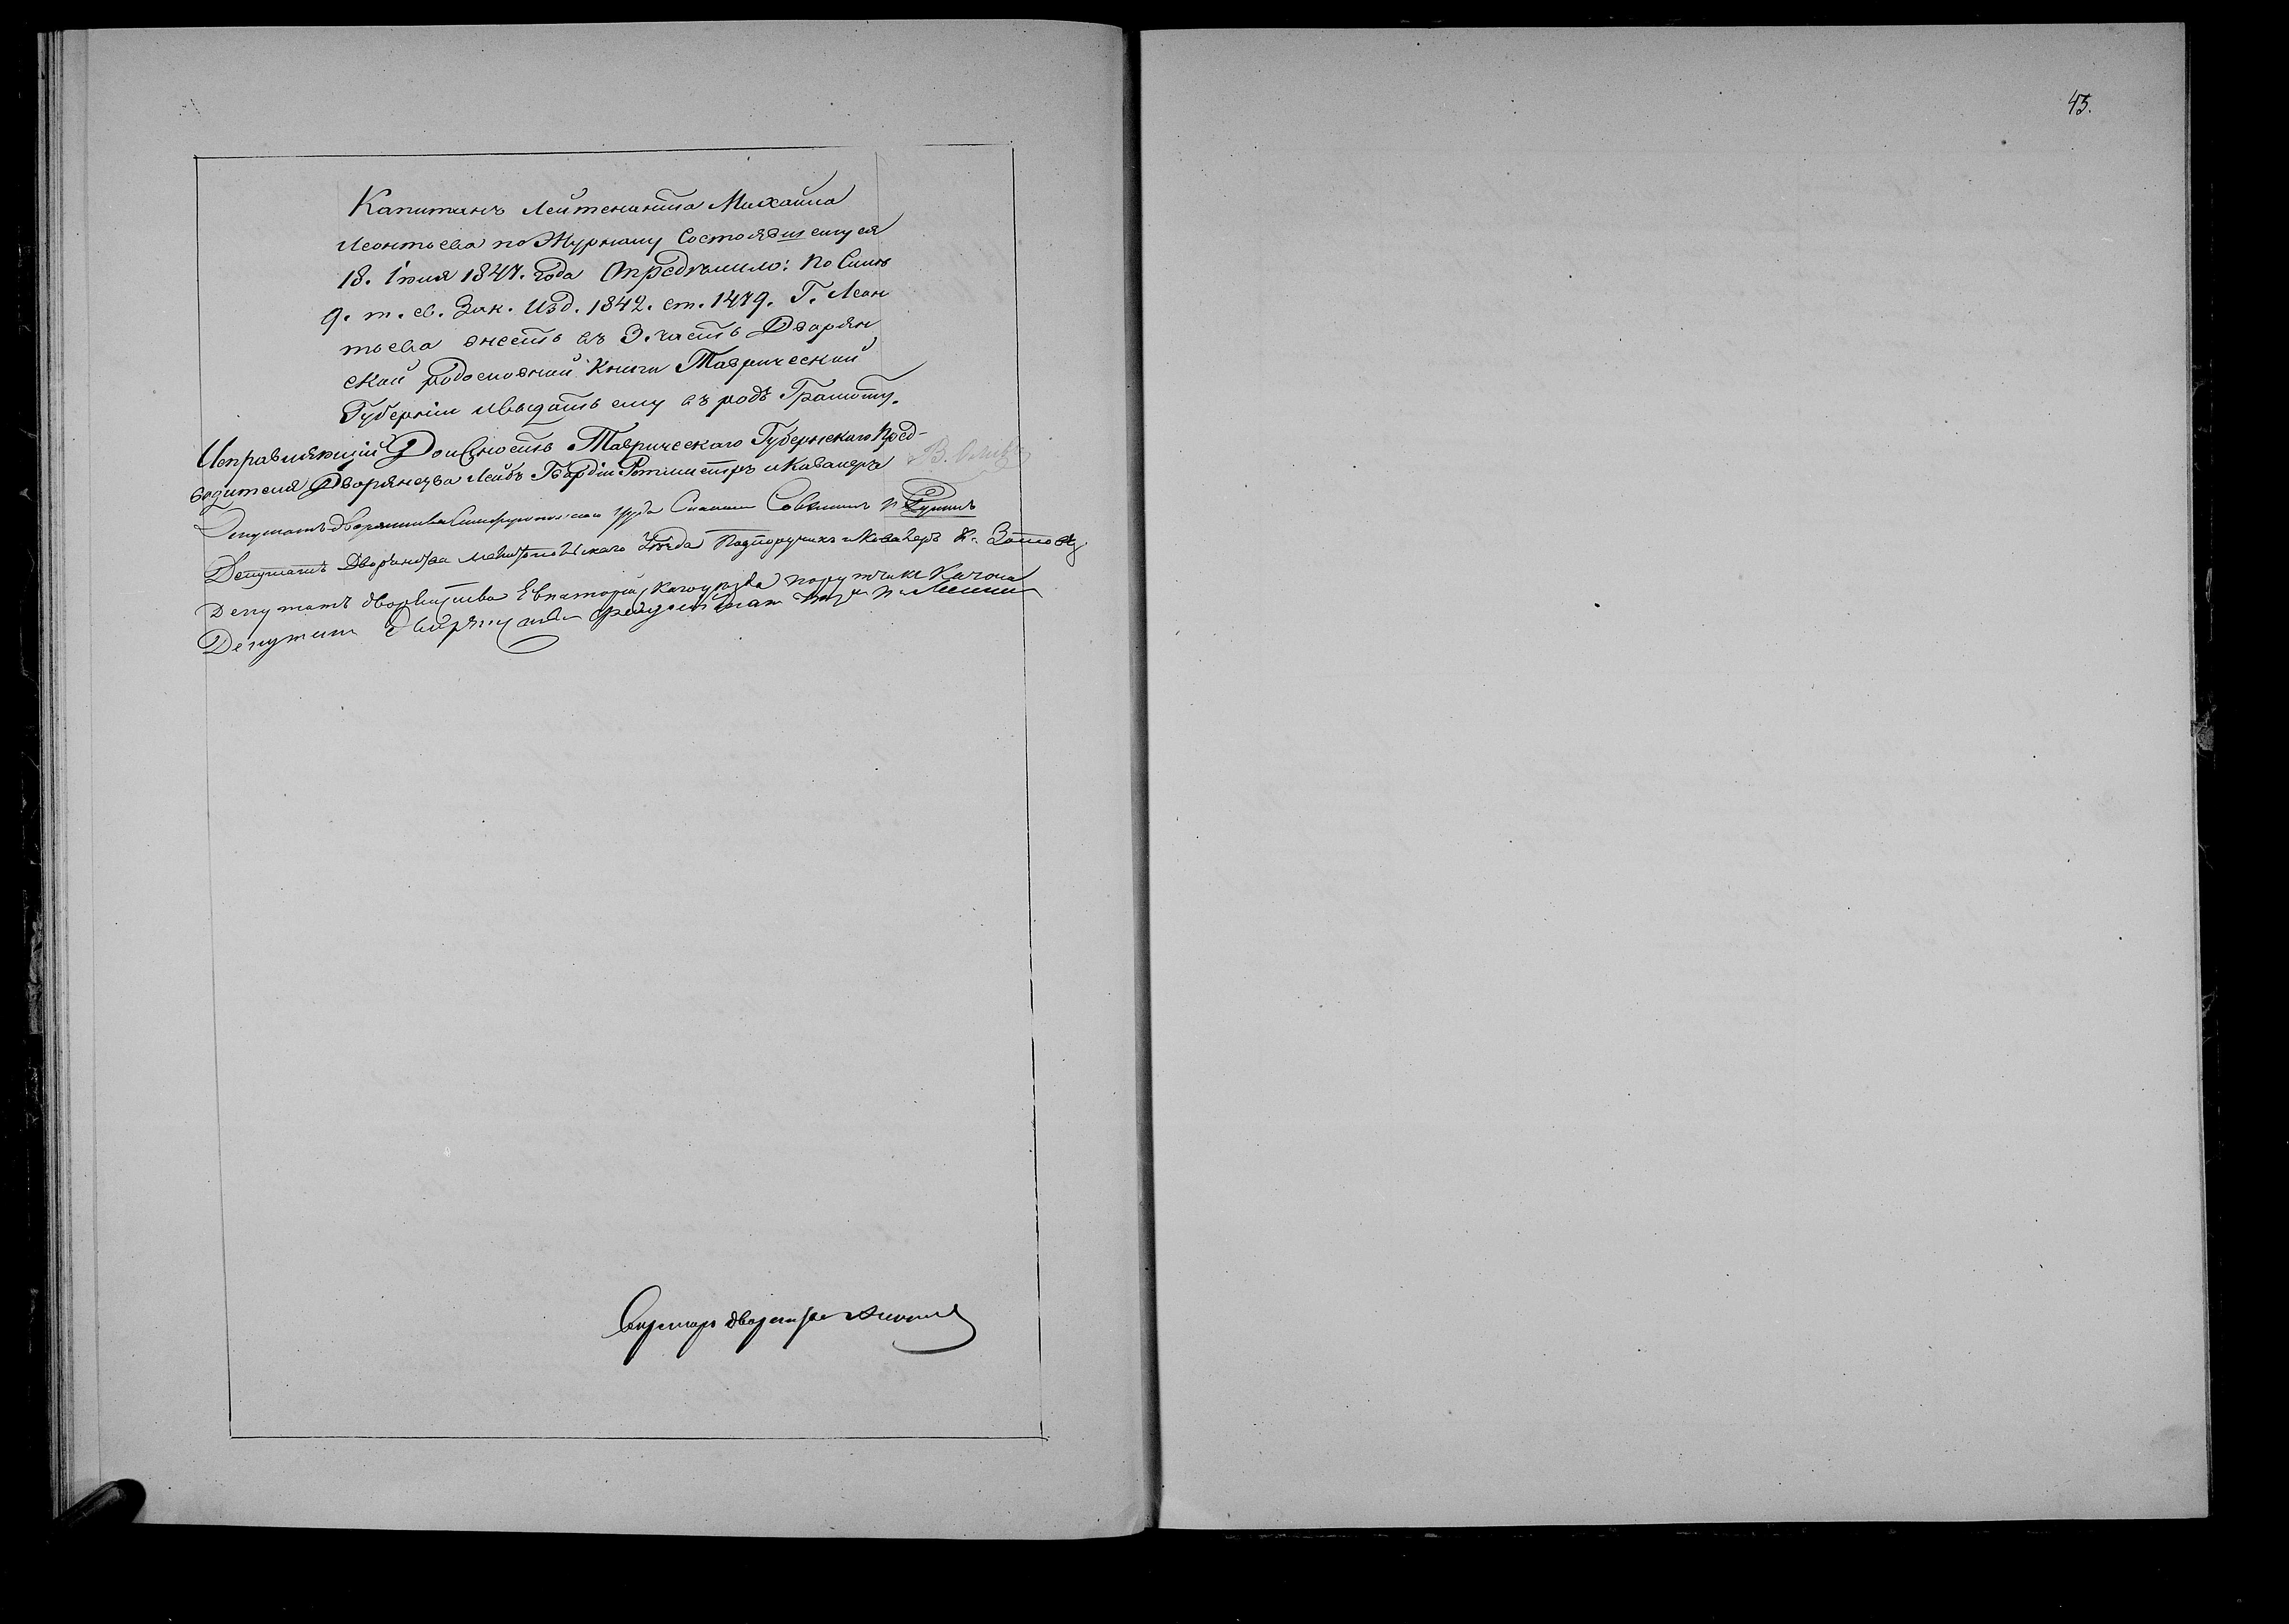 45.
Капитанъ Лейтенанта Михаила
Леонтьева по Журналу Состоявшемуся
18. Іюля 1847. года Опредѣлило: по Силѣ
9. т. св. Зак. Изд. 1842. ст. 1479. Г. Леон
тьева внесть въ 3. часть Дворян
ской родословной Книги Таврической
Губерніи и выдать ему въ родъ Грамоту.
Исправляющій Должность Таврическаго Губернскаго Пред-
водителя Дворянства Лейбъ Гвардіи Ротмистръ и Кавалеръ В.
Депутатъ дворянства Симферопольскаго уѣзда
Депутатъ Дворянства Мелитопольскаго Уѣзда Подпоручикъ и Кавалеръ
Депутатъ дворянства Евпаторійскаго уѣзда поручикъ
Депутатъ дворянства Феодосійскаго
Секретарь дворянства